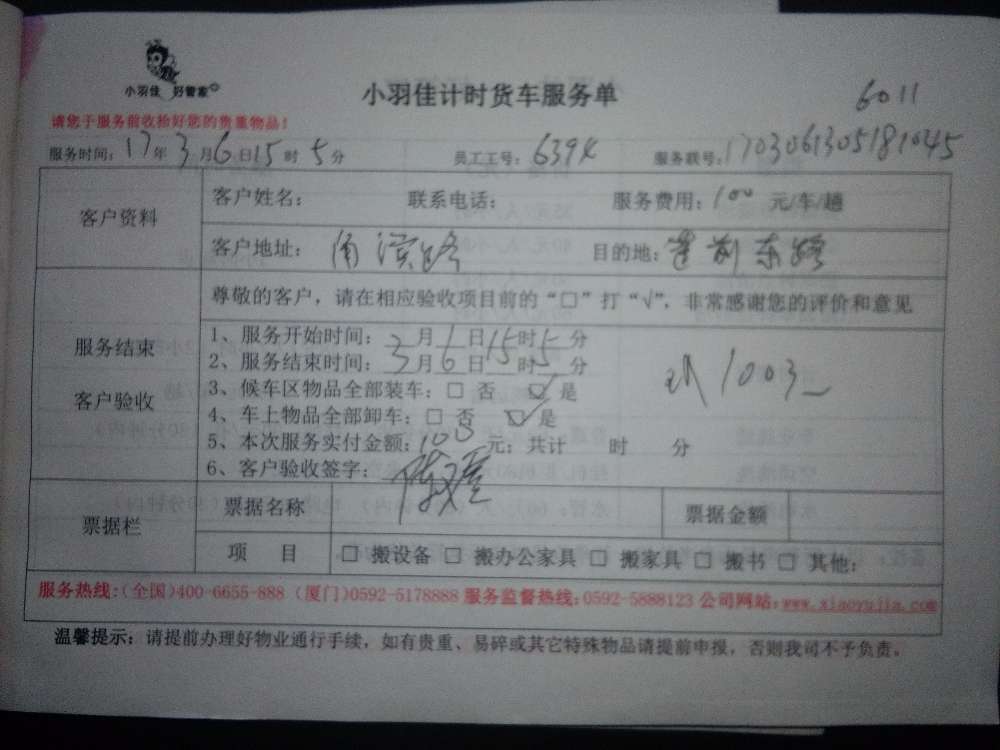 小羽佳 好管家
小羽佳计时货车服务单
6011
请您于服务前收拾好您的贵重物品!
服务时间: 17年3月6日15时5分 员工工号: 6394 服务联号: 1703061305181045
客户资料 客户姓名: 联系电话: 服务费用: 100 元/车/趟
客户地址: 湖滨路 目的地: 莲前东路
尊敬的客户, 请在相应验收项目前的“□”打“√”, 非常感谢您的评价和意见
服务结束
客户验收
1、服务开始时间: 3月6日15时5分
2、服务结束时间: 3月6日15时5分
3、候车区物品全部装车: □ 否 ☑ 是
4、车上物品全部卸车: □ 否 ☑ 是
1003
5、本次服务实付金额: 100 元; 共计 时 分
6、客户验收签字:
票据栏 票据名称 票据金额
项 目 □ 搬设备 □ 搬办公家具 □ 搬家具 □ 搬书 □ 其他:
服务热线:(全国)400-6655-888 (厦门)0592-5178888 服务监督热线:0592-5888123 公司网站:www.xiaoyujia.com
温馨提示: 请提前办理好物业通行手续, 如有贵重、易碎或其它特殊物品请提前申报, 否则我司不予负责。